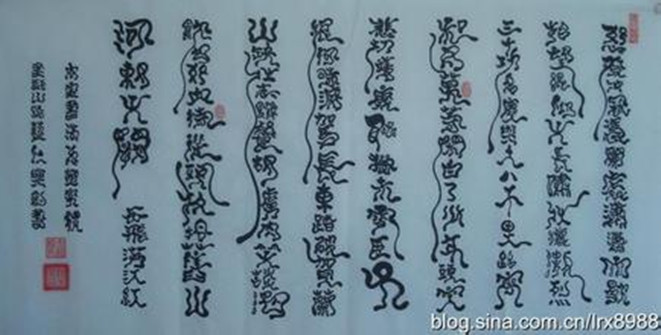 怒髮衝冠憑闌處瀟瀟雨歇
抬望眼仰天長嘯壯懷激烈
三十功名塵與土八千里路雲
和月莫等閒白了少年頭空
悲切靖康恥猶未雪臣子
恨何時滅駕長車踏破賀蘭
山缺壯志飢餐胡虜肉笑談渴
飲匈奴血待從頭收拾舊山
河朝天闕 岳飛滿江紅
blog.sina.com.cn/lrx8988